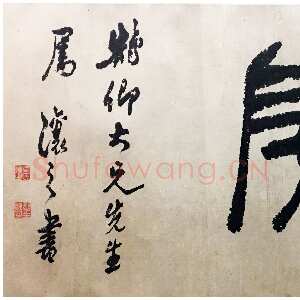 卿大兄先生
屬 讓之書
Shufawang.CN